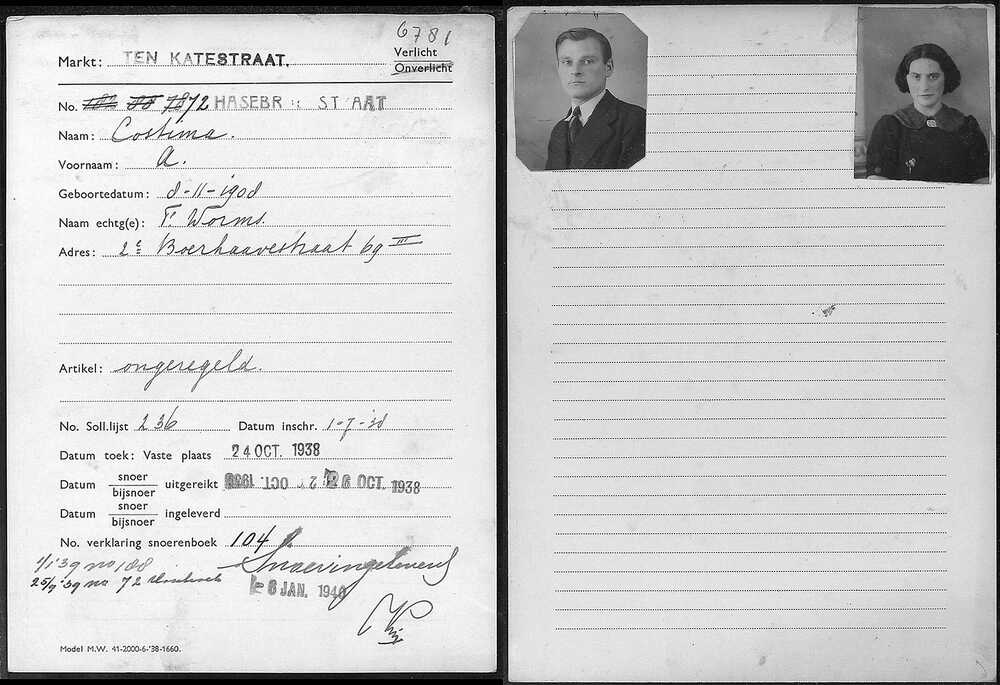 6781
Markt: TEN KATESTRAAT.
Verlicht
Onverlicht
No. 72 HASEBR STRAAT
Naam: Costima.
Voornaam: A.
Geboortedatum: 8-11-1908
Naam echtg(e): F. Worms.
Adres: 2e Boerhaavestraat 69 III
Artikel: ongeregeld.
No. Soll.lijst 236 Datum inschr. 1-7-38
Datum toek: Vaste plaats 24 OCT. 1938
Datum snoer bijsnoer uitgereikt 26 OCT. 1938
Datum snoer bijsnoer ingeleverd
No. verklaring snoerenboek 104
1/1 39 no 188
25/9 '39 no 72
Snoer ingeleverd
-8 JAN. 1940
Model M.W. 41-2000-6-'38-1660.